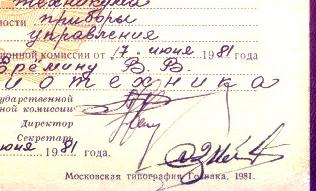 техникум
ности приборы
управления
ионной комиссии от 17 июня 1981 г.
Ерёмину В. В.
иотехника
сударственной
ной комиссии
Директор
Секретарь
июня 1981 года.
Московская типография Гознака, 1981.